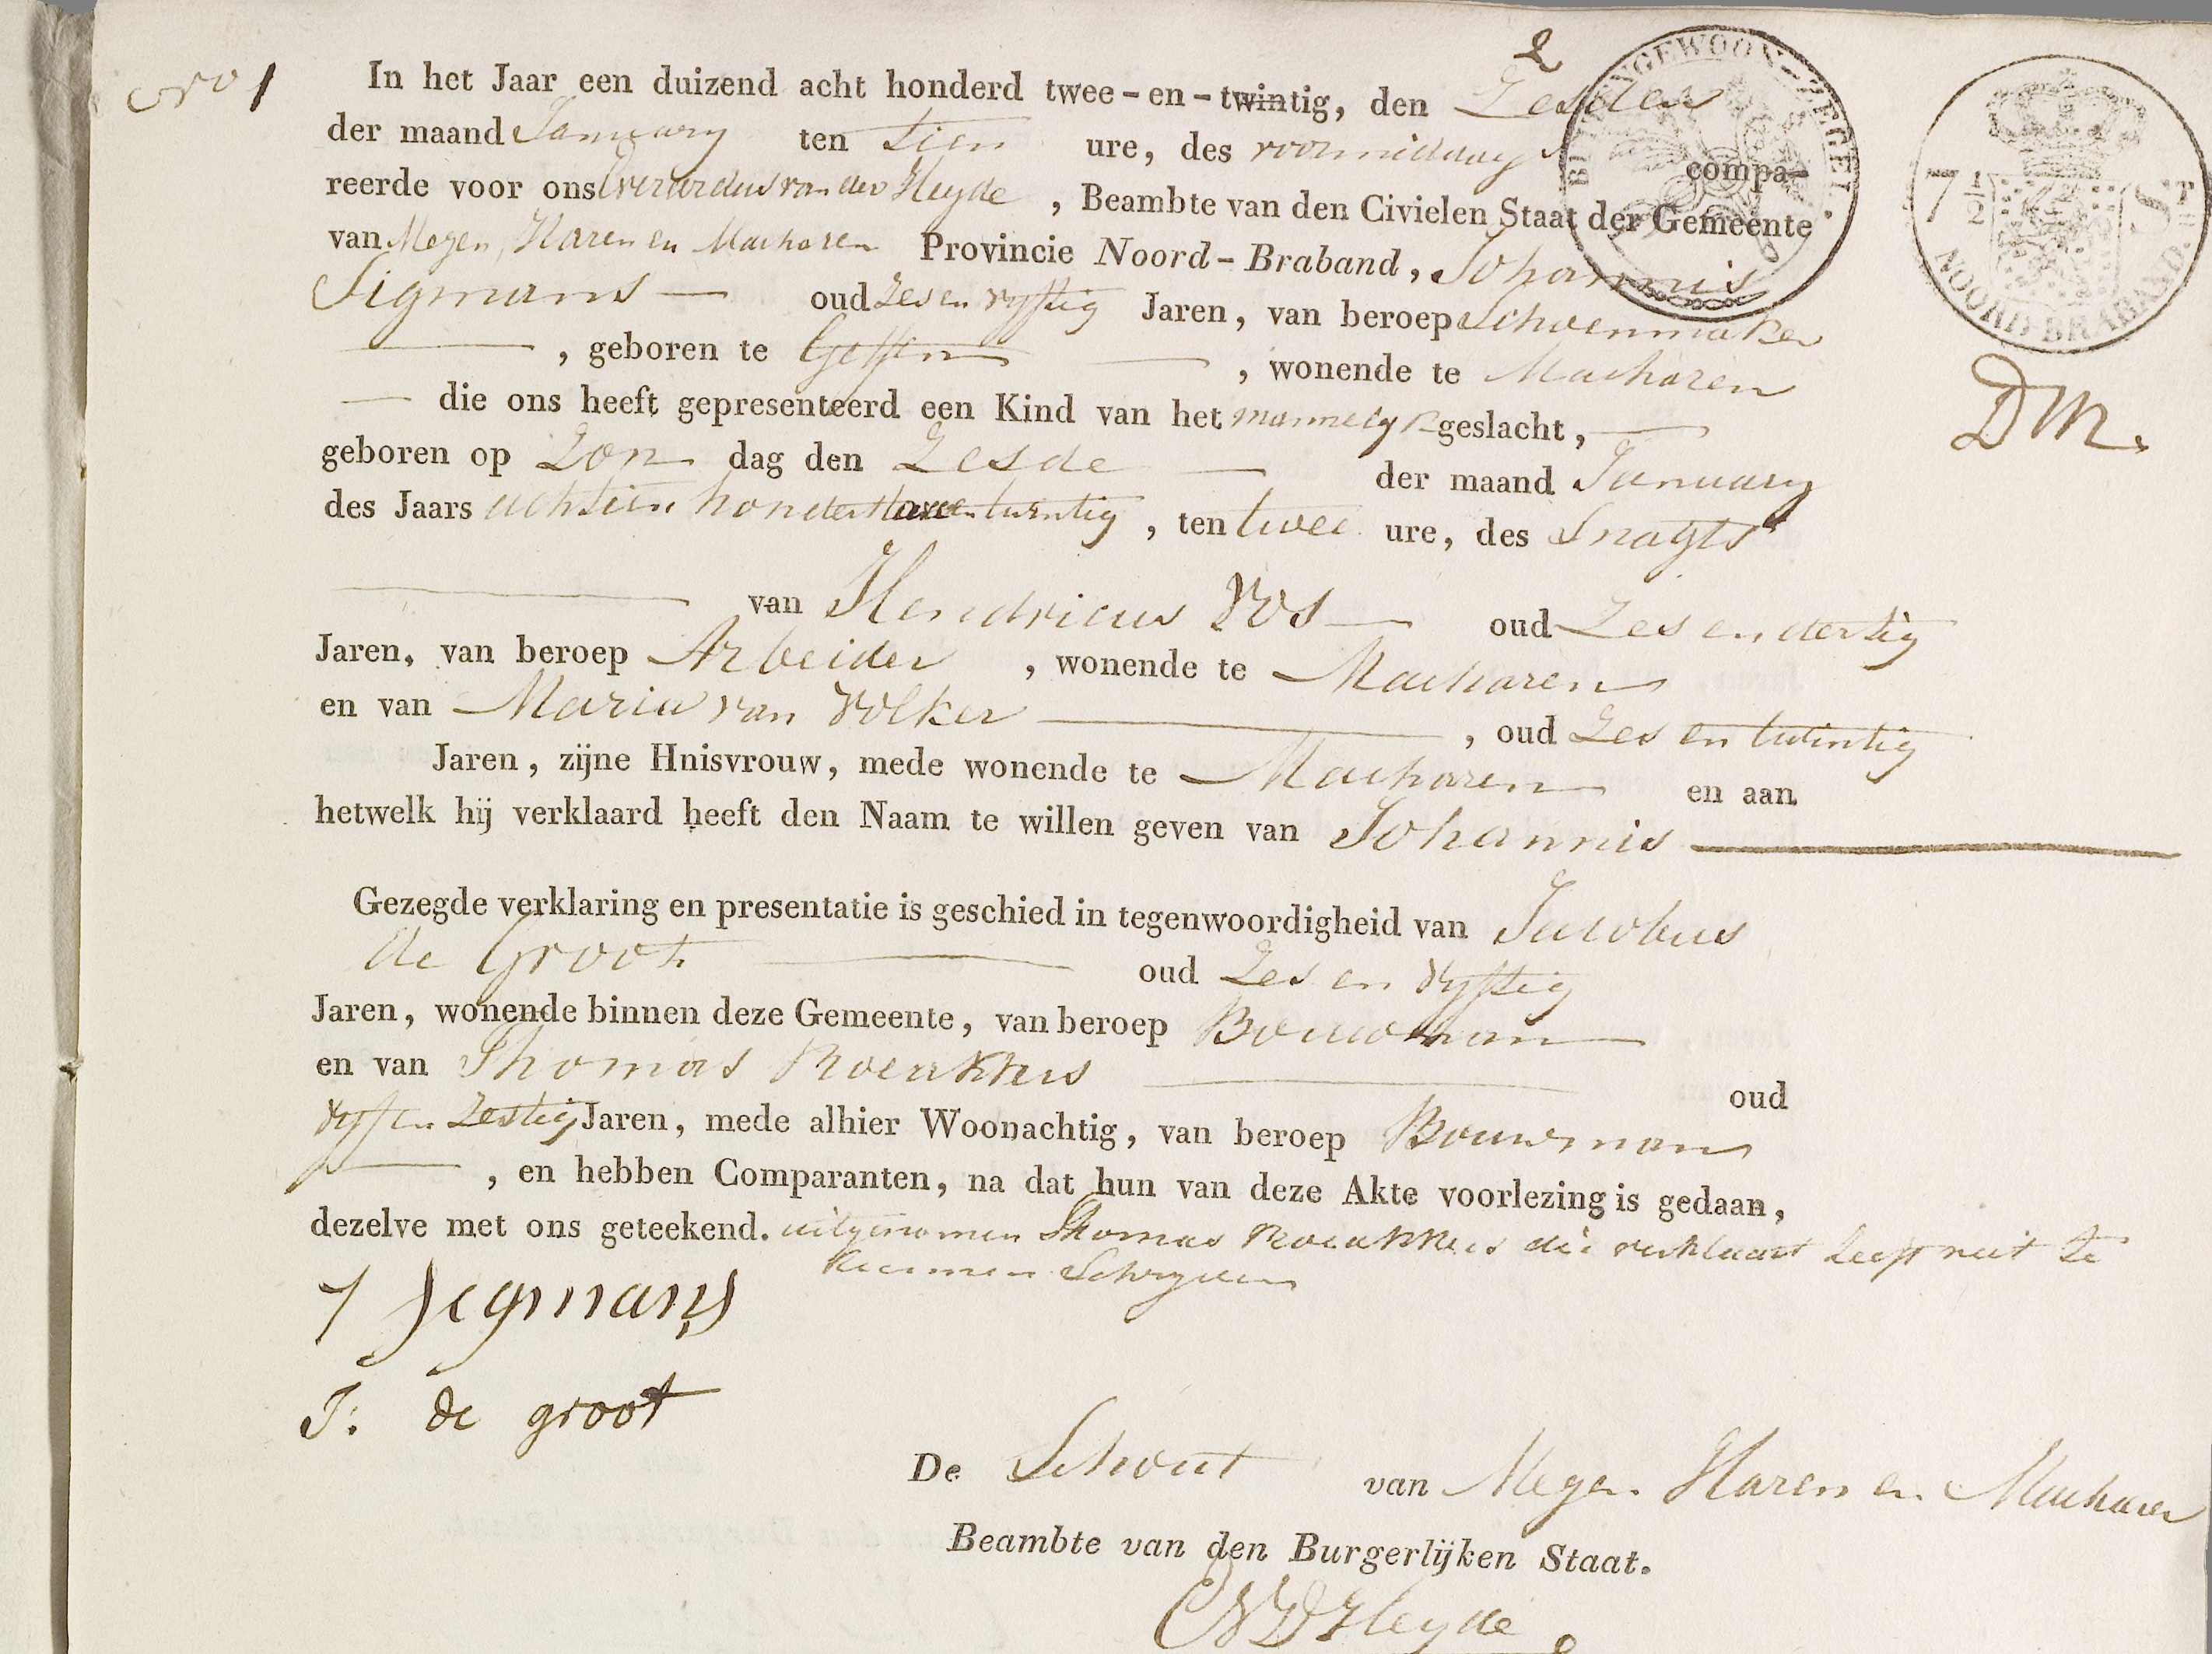 No 1
In het Jaar een duizend acht honderd twee-en-twintig, den Zesden
der maand January ten tien ure, des voormiddag compa-
reerde voor ons Everardus van der Heyde, Beambte van den Civielen Staat der Gemeente
van Megen, Haren en Macharen Provincie Noord-Braband, Johannis
Sigmans oud Zes en vyftig Jaren, van beroep Schoenmaker
, geboren te Geffen, wonende te Macharen
die ons heeft gepresenteerd een Kind van het mannelyk geslacht,
geboren op Zon dag den Zesde der maand January
des Jaars achtien hondert twee en twintig, ten twee ure, des Snagts
van Hendricus Vos oud Zes en dertig
Jaren, van beroep Arbeider, wonende te Macharen
en van Maria van Volker, oud Zes en twintig
Jaren, zijne Hnisvrouw, mede wonende te Macharen en aan
hetwelk hij verklaard heeft den Naam te willen geven van Johannis
Gezegde verklaring en presentatie is geschied in tegenwoordigheid van Jacobus
de Groot oud Zes en vyftig
Jaren, wonende binnen deze Gemeente, van beroep Bouwman
en van Thomas oud
vyf en Zestig Jaren, mede alhier Woonachtig, van beroep Bouwman
, en hebben Comparanten, na dat hun van deze Akte voorlezing is gedaan,
dezelve met ons geteekend. uitgenomen Thomas die verklaart heeft niet te
kunnen Schryven
J Segmans
J: de groot
De Schout van Megen Haren en Macharen
Beambte van den Burgerlijken Staat.
VDHeyde
BUITENGEWOON ZEGEL.
7 1/2 ST
NOORD-BRABAND.
DM.